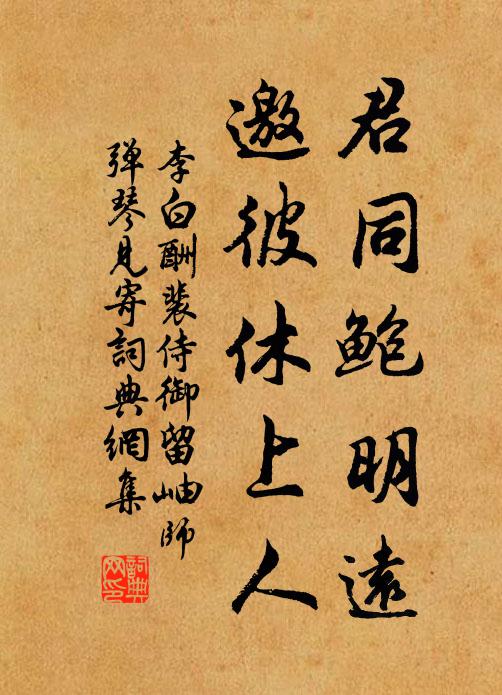 君同鲍明遠
邀彼休上人
李白酬裴侍御留岫师
弹琴见寄詞典網集
詞典
网印